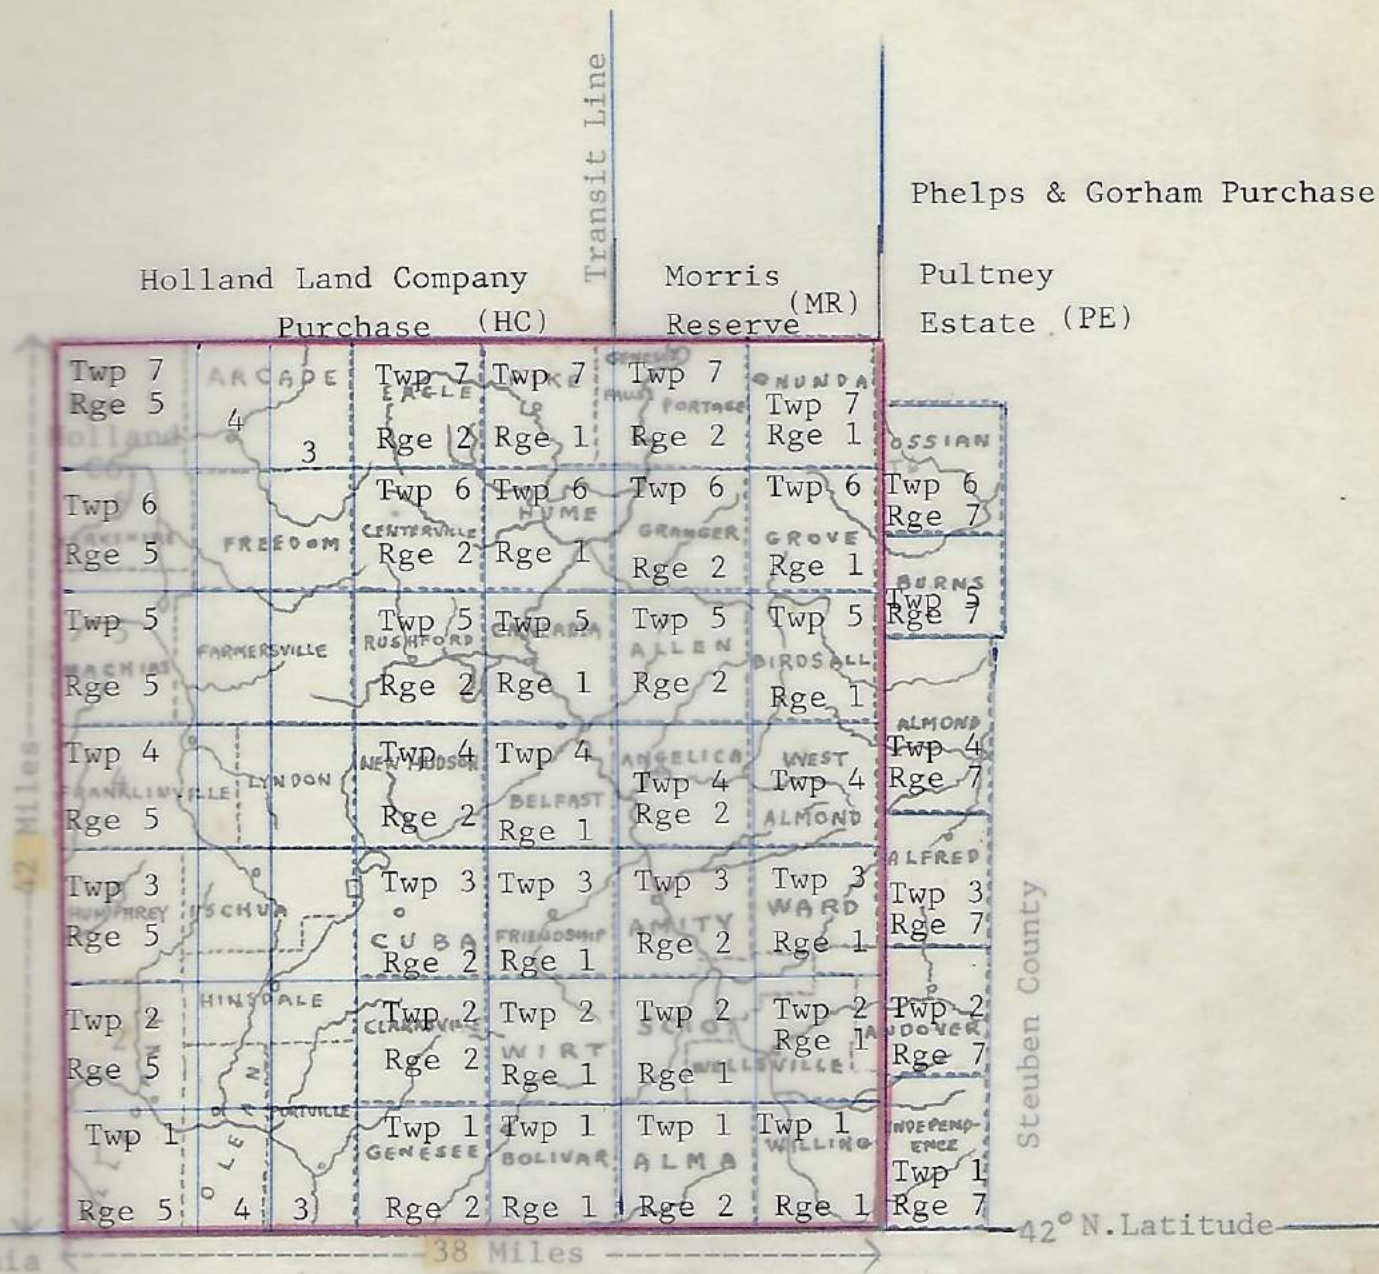 Transit Line
Phelps & Gorham Purchase
Holland Land Company
Purchase (HC)
Morris
Reserve (MR)
Pultney
Estate (PE)
Twp 7
Rge 5
Holland
Co
ARCADE
4
3
Twp 7
EAGLE
Rge 2
Twp 7
Rge 1
GENESEE
Twp 7
FALLS PORTAGE
Rge 2
ONUNDA
Twp 7
Rge 1
OSSIAN
Twp 6
Rge 7
Twp 6
Rge 5
FREEDOM
Twp 6
CENTERVILLE
Rge 2
Twp 6
HUME
Rge 1
Twp 6
GRANGER
Rge 2
Twp 6
GROVE
Rge 1
BURNS
Twp 5
Rge 7
Twp 5
MACHIAS
Rge 5
FARMERSVILLE
Twp 5
RUSHFORD
Rge 2
Twp 5
Rge 1
Twp 5
ALLEN
Rge 2
Twp 5
BIRDSALL
Rge 1
Twp 4
FRANKLINVILLE
Rge 5
LYNDON
Twp 4
NEW HUDSON
Rge 2
Twp 4
BELFAST
Rge 1
ANGELICA
Twp 4
Rge 2
WEST
Twp 4
ALMOND
ALMOND
Twp 4
Rge 7
Twp 3
HUMPHREY
Rge 5
ISCHUA
Twp 3
CUBA
Rge 2
Twp 3
FRIENDSHIP
Rge 1
Twp 3
AMITY
Rge 2
Twp 3
WARD
Rge 1
ALFRED
Twp 3
Rge 7
Twp 2
Rge 5
HINSDALE
Twp 2
CLARKSVILLE
Rge 2
Twp 2
WIRT
Rge 1
Twp 2
SCIO
Rge 1
Twp 2
Rge 1
WELLSVILLE
Twp 2
ANDOVER
Rge 7
Twp 1
Rge 5
OLEAN
4
PORTVILLE
3
Twp 1
GENESEE
Rge 2
Twp 1
BOLIVAR
Rge 1
Twp 1
ALMA
Rge 2
Twp 1
WILLING
Rge 1
INDEPEND-
ENCE
Twp 1
Rge 7
42 Miles
Steuben County
42° N.Latitude
38 Miles